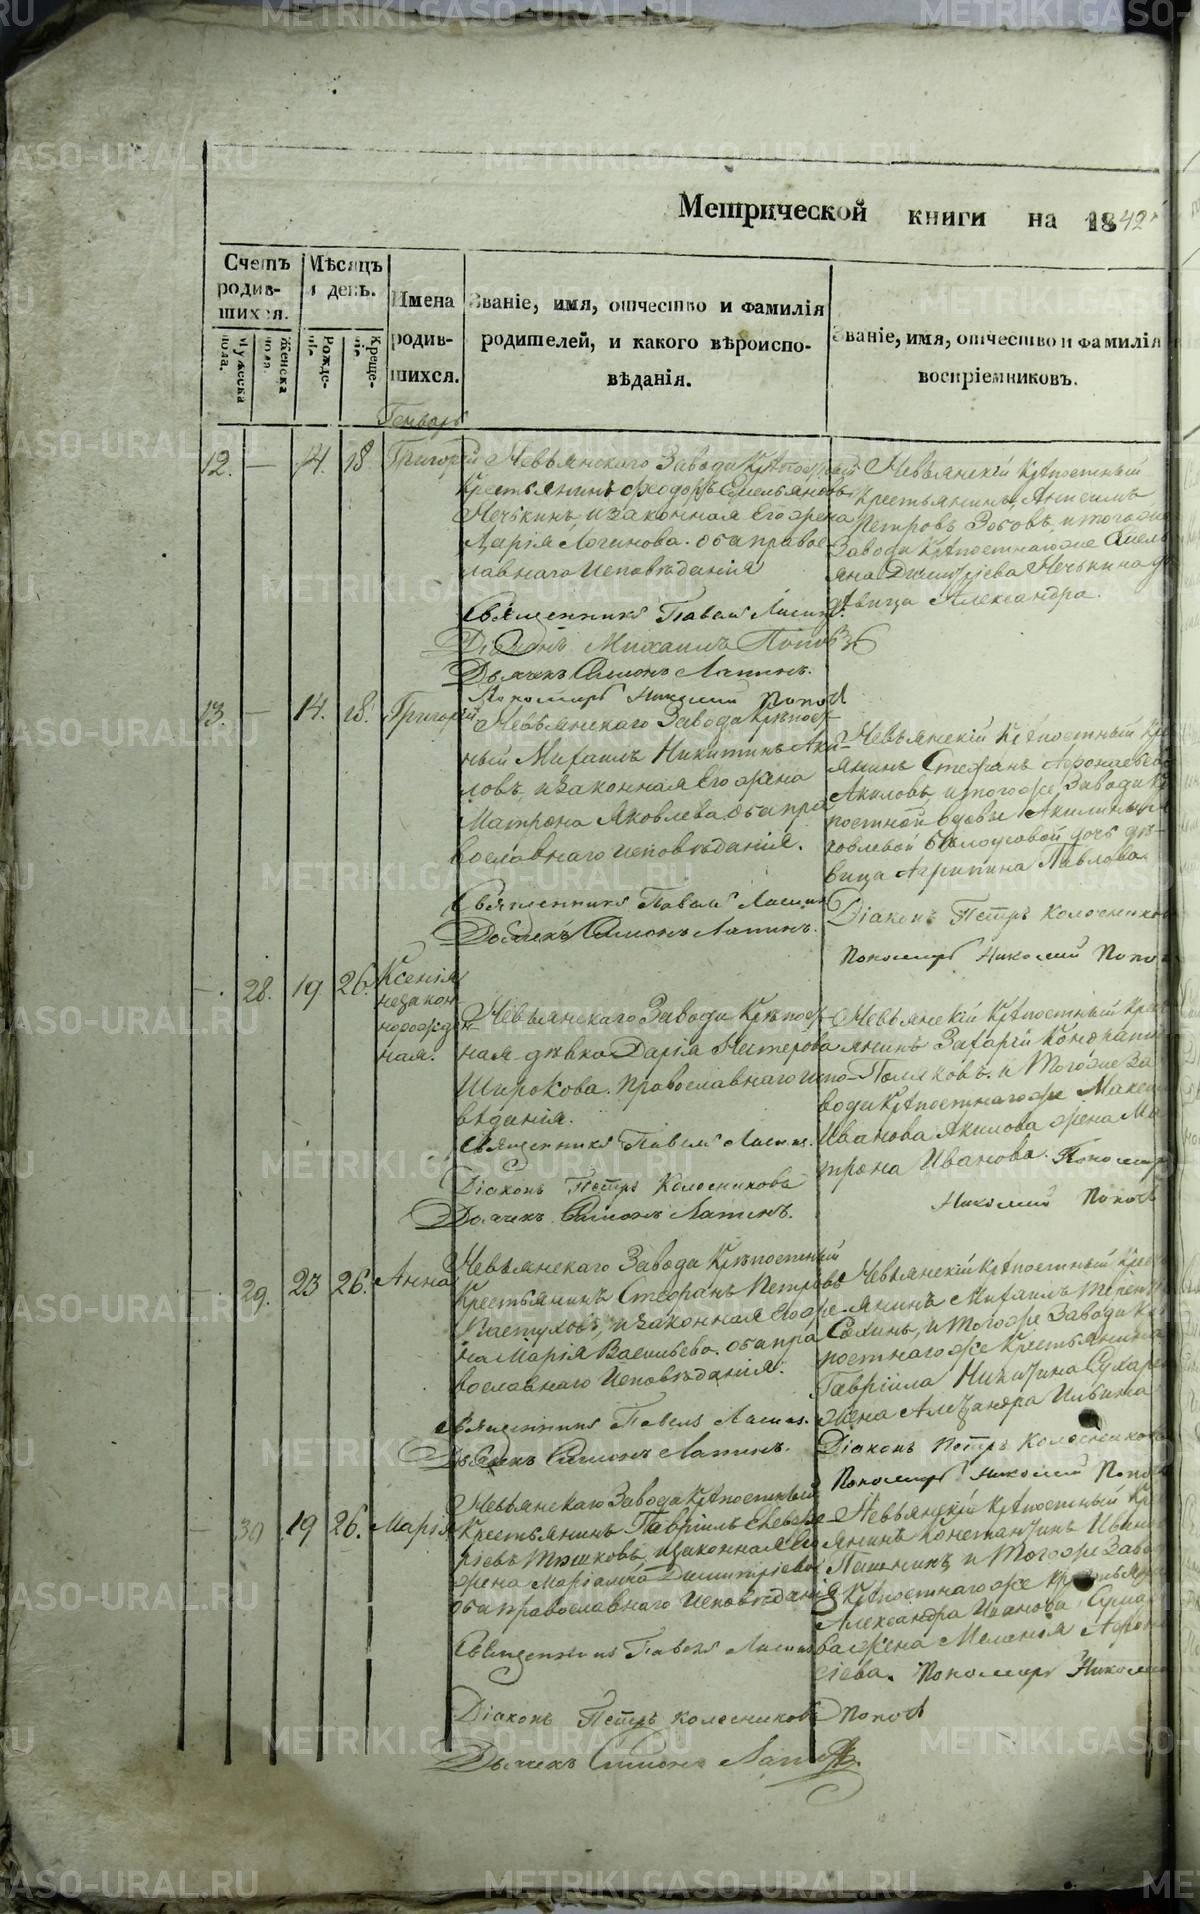 Метрической книги на 1842
Счетъ родив-шихся.
Мѣсяцъ и день.
Имена родив-шихся.
Званіе, имя, отчество и фамилія
родителей, и какого вѣроиспо-
вѣданія.
Званіе, имя, отчество и фамилія
воспріемниковъ.
Мужеска пола.
Женска пола.
Рожде-нія.
Креще-нія.
Генварь
12. — 14. 18. Григорій
Невьянскаго Завода Крѣпостный
Крестьянинъ Ѳеодоръ Емельяновъ
Нечькинъ, и законная Его жена
Дарія Логинова. оба правос-
лавнаго Исповѣданія
Священникъ Павелъ
Діаконъ Михаилъ Поповъ
Дьячекъ Симонъ Лапинъ.
Пономарь Николай Поповъ
Невьянскій Крѣпостный
Крестьянинъ Анисимъ
Петровъ Зобовъ, и тогоже
Завода Крѣпостнагоже Емель
яна Димитріева Нечькина до
дѣвица Александра.
13. — 14. 18. Григорій
Невьянскаго Завода Крѣпост-
ный Михаилъ Никитинъ Аки-
ловъ, и законная Его жена
Матрона Яковлева оба пра
вославнаго исповѣданія.
Священникъ Павелъ
Дьячекъ Симонъ Лапинъ.
Невьянскій Крѣпостный Кре
янинъ Стефанъ
Акиловъ, и тогоже Завода К
постной вдовы Акилины
ковлевой дочь дѣ-
вица Агрипина Павлова
Діаконъ Петръ Колесников
Пономарь Николай Попо
— . 28. 19 26. Ксенія
незакон
норожден-
ная.
Невьянскаго Завода Крѣпост-
ная дѣвка Дарія Нестерова
Широкова. Православнаго испо-
вѣданія.
Священникъ Павелъ
Діаконъ Петръ Колесниковъ
Дьячекъ Симонъ Лапинъ.
Невьянскій Крѣпостный Крес
янинъ Захарій Кондрати
Поляковъ. и Тогоже За
вода Крѣпостнагоже Макси
Иванова Акилова жена Ма
трона Иванова. Пономарь
Николай Поповъ
— . 29. 23 26. Анна
Невьянскаго Завода Крѣпостный
Крестьянинъ Стефанъ Петровъ
Пастуховъ, и законная Его же-
на Марія Васильева. оба пра
вославнаго Исповѣданія.
Священникъ Павелъ
Дьячекъ Симонъ Лапинъ.
Невьянскій Крѣпостный Крес
янинъ Михаилъ
и Тогоже Завода К
постнагоже Крестьянина
Гавріила Никитина Сухаре
жена Александра Ильина
Діаконъ Петръ Колесников
Пономарь Николай Попо
— 30 19 26. Марія
Невьянскаго Завода Крѣпостный
Крестьянинъ Гавріилъ
и законная Его
жена Маріанна Димитріева
оба православнаго Исповѣданія
Священникъ Павелъ
Діаконъ Петръ Колесниковъ
Дьячекъ Симонъ
Невьянскій Крѣпостный Кре
янинъ Константинъ Ивано
и Тогоже Завод
Крѣпостнагоже Крестьяни
Александра Иванова
ва жена Меланія
сіева. Пономарь Никола
Поповъ